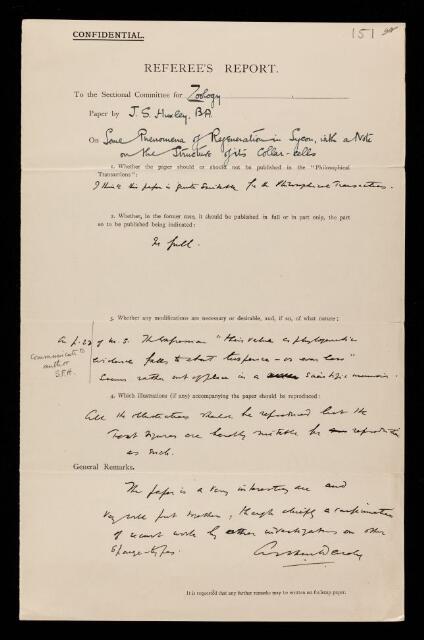 CONFIDENTIAL.
151
REFEREE'S REPORT.
To the Sectional Committee for Zoology
Paper by J. S. Huxley, B.A.
On Some Phenomena of Regeneration in Sycon, with a Note
on the Structure of its Collar-cells
1. Whether the paper should or should not be published in the "Philosophical
Transactions":
I think this paper is quite suitable for the Philosophical Transactions.
2. Whether, in the former case, it should be published in full or in part only, the part
so to be published being indicated:
In full.
3. Whether any modifications are necessary or desirable, and, if so, of what nature:
On p. 22 of the MS. the expression "their value as phylogenetic
evidence falls to about twopence – or even less"
seems rather out of place in a scientific memoir.
Communicated to
author
S.F.H.
4. Which illustrations (if any) accompanying the paper should be reproduced:
All the illustrations should be reproduced but the
text figures are hardly suitable for reproduction
as such.
General Remarks.
The paper is a very interesting one and
very well put together, though chiefly a confirmation
of recent work by other investigators on other
sponge-types.
Arthur Dendy
It is requested that any further remarks may be written on foolscap paper.